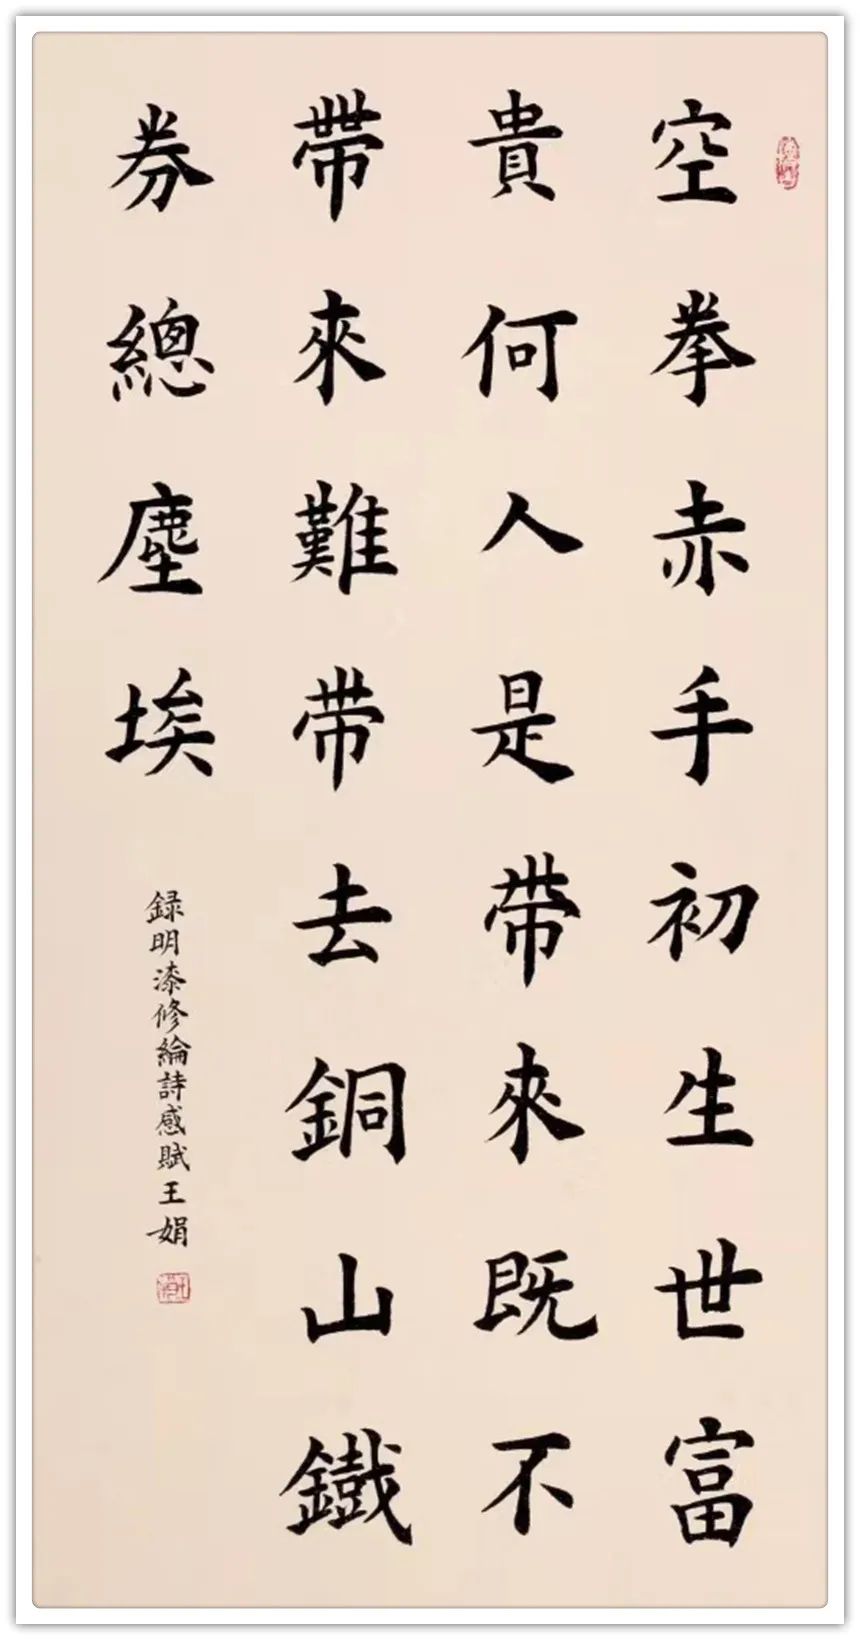 空拳赤手初生世富
貴何人是帶來既不
帶來難带去銅山鐵
券總塵埃
録明漆修綸詩感賦王娟